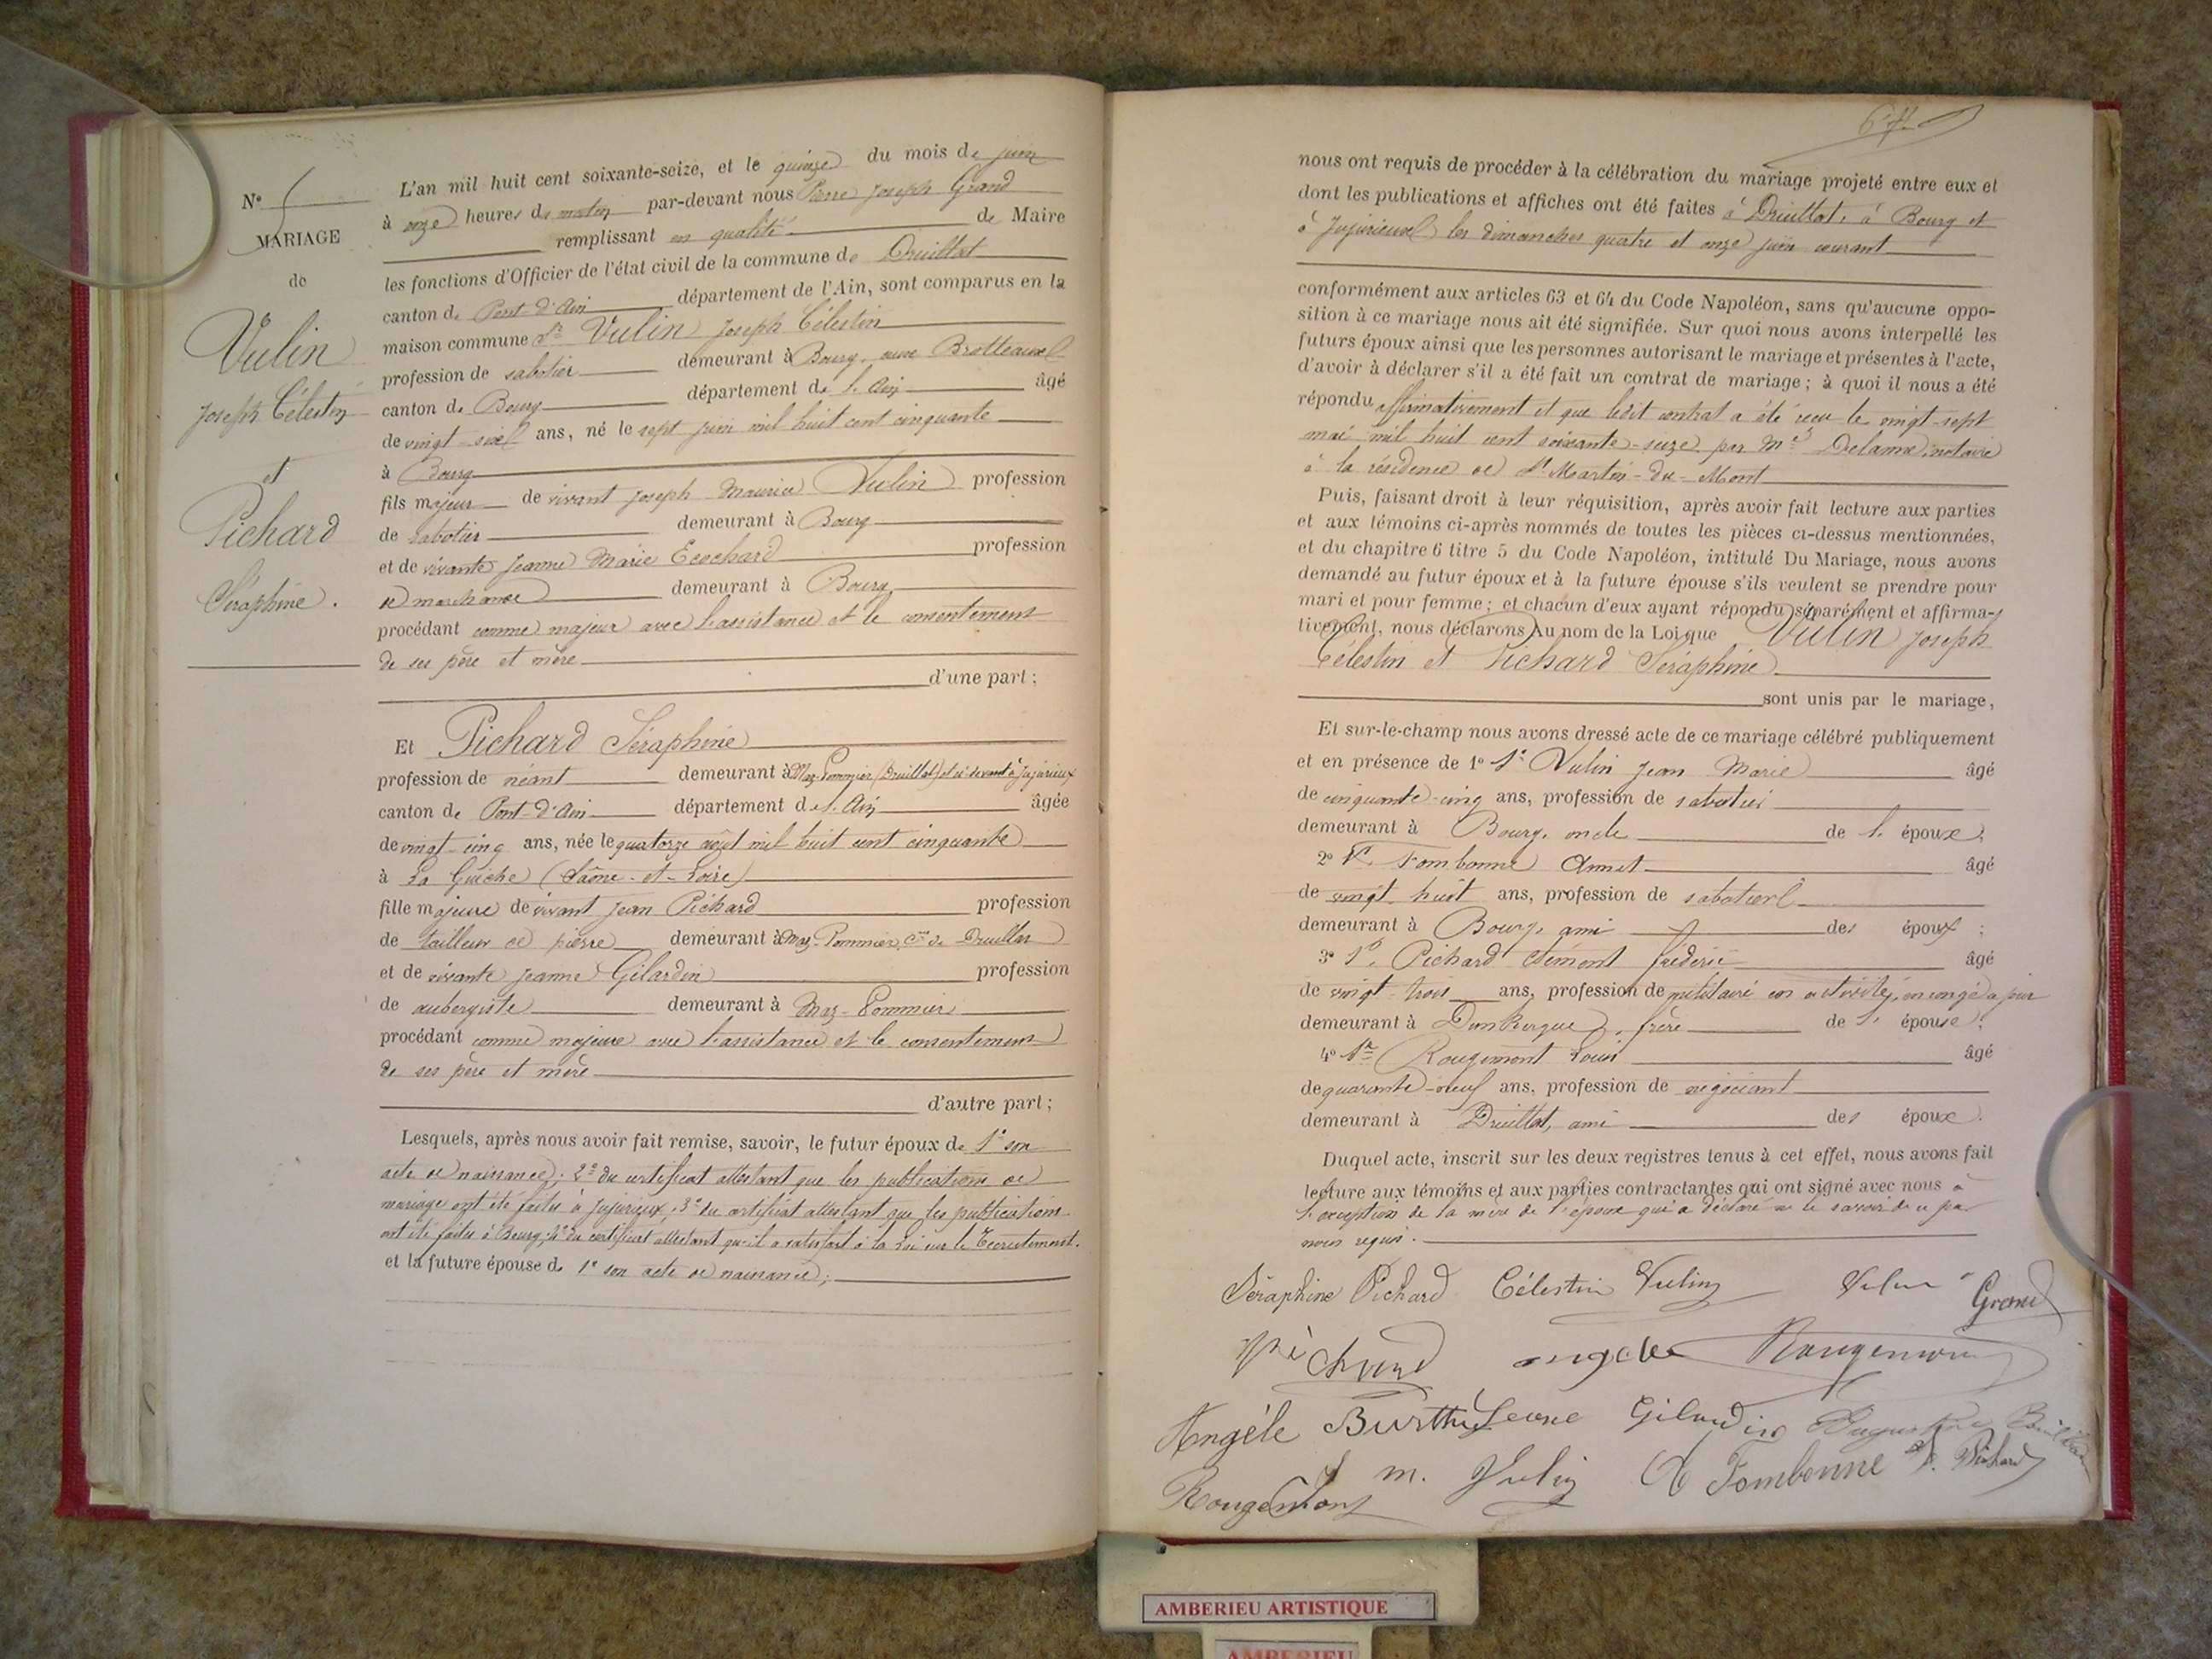 N° 5
MARIAGE
de
Vulin
Joseph Célestin
et
Pichard
Séraphine.
L'an mil huit cent soixante-seize, et le quinze du mois de juin
à onze heures du matin par-devant nous Pierre Joseph Grand
remplissant en qualité de Maire
les fonctions d'Officier de l'état civil de la commune de Druillat
canton de Pont-d'Ain département de l'Ain, sont comparus en la
maison commune Sr Vulin Joseph Célestin
profession de sabotier demeurant à Bourg, aux Brotteaux
canton de Bourg département de l'Ain âgé
de vingt-six ans, né le sept juin mil huit cent cinquante
à Bourg
fils majeur de vivant Joseph Maurice Vulin profession
de sabotier demeurant à Bourg
et de vivante Jeanne Marie Ecochard profession
de marchande demeurant à Bourg,
procédant comme majeur avec l'assistance et le consentement
de ses père et mère
d'une part;
Et Pichard Séraphine
profession de néant demeurant à Maz-Pommier (Druillat) et ci-devant à Jujurieux
canton de Pont-d'Ain département de l'Ain âgée
de vingt-cinq ans, née le quatorze août mil huit cent cinquante
à La Guiche (Saône-et-Loire)
fille majeure de vivant Jean Pichard profession
de tailleur de pierre demeurant à Maz-Pommier, Cne de Druillat
et de vivante Jeanne Gilardin profession
de aubergiste demeurant à Maz-Pommier
procédant comme majeure avec l'assistance et le consentement
de ses père et mère
d'autre part;
Lesquels, après nous avoir fait remise, savoir, le futur époux de 1° son
acte de naissance; 2° du certificat attestant que les publications de
mariage ont été faites à Jujurieux; 3° du certificat attestant que les publications
ont été faites à Bourg; 4° du certificat attestant qu'il a satisfait à la Loi sur le Recrutement.
et la future épouse de 1° son acte de naissance;
67
nous ont requis de procéder à la célébration du mariage projeté entre eux et
dont les publications et affiches ont été faites à Druillat, à Bourg et
à Jujurieux les dimanches quatre et onze juin courant
conformément aux articles 63 et 64 du Code Napoléon, sans qu'aucune oppo-
sition à ce mariage nous ait été signifiée. Sur quoi nous avons interpellé les
futurs époux ainsi que les personnes autorisant le mariage et présentes à l'acte,
d'avoir à déclarer s'il a été fait un contrat de mariage; à quoi il nous a été
répondu affirmativement et que ledit contrat a été reçu le vingt-sept
mai mil huit cent soixante-seize par Me Delanne, notaire
à la résidence de St Martin-du-Mont
Puis, faisant droit à leur réquisition, après avoir fait lecture aux parties
et aux témoins ci-après nommés de toutes les pièces ci-dessus mentionnées,
et du chapitre 6 titre 5 du Code Napoléon, intitulé Du Mariage, nous avons
demandé au futur époux et à la future épouse s'ils veulent se prendre pour
mari et pour femme; et chacun d'eux ayant répondu séparément et affirma-
tivement, nous déclarons Au nom de la Loi que Vulin Joseph
Célestin et Pichard Séraphine
sont unis par le mariage,
Et sur-le-champ nous avons dressé acte de ce mariage célébré publiquement
et en présence de 1° Sr Vulin Jean Marie âgé
de cinquante-cinq ans, profession de sabotier
demeurant à Bourg, oncle de l'époux;
2° Sr Fombonne Annet âgé
de vingt-huit ans, profession de sabotier
demeurant à Bourg, ami des époux;
3° Sr Pichard Simont frédéric âgé
de vingt-trois ans, profession de militaire en activité, en congé
demeurant à Dunkerque, frère de l'épouse;
4° Sr Rougemont Louis âgé
de quarante-neuf ans, profession de négociant
demeurant à Druillat, ami des époux.
Duquel acte, inscrit sur les deux registres tenus à cet effet, nous avons fait
lecture aux témoins et aux parties contractantes qui ont signé avec nous à
l'exception de la mère de l'époux qui a déclaré ne le savoir de ce par
nous requis.
Séraphine Pichard Célestin Vulin Vulin Grand
Pichard angele Rougemont
Angéle Burthy Jeane Gilardin
J m. Vulin A Fombonne F. Pichard
Rougemont
AMBERIEU ARTISTIQUE
AMBERIEU